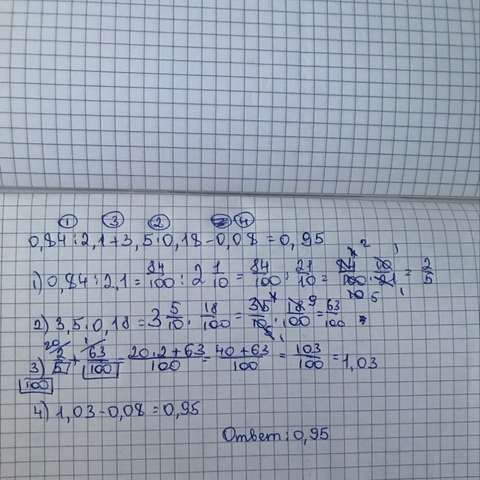 ① ③ ② ④
0,84 : 2,1 + 3,5 · 0,18 - 0,08 = 0,95
1) 0,84 : 2,1 = 84/100 : 2 1/10 = 84/100 : 21/10 = 84/100 · 10/21 = 2/5
2) 3,5 · 0,18 = 3 5/10 · 18/100 = 35/10 · 18/100 = 63/100
3) 2/5 + 63/100 = 20·2+63/100 = 40+63/100 = 103/100 = 1,03
100
4) 1,03 - 0,08 = 0,95
Ответ: 0,95